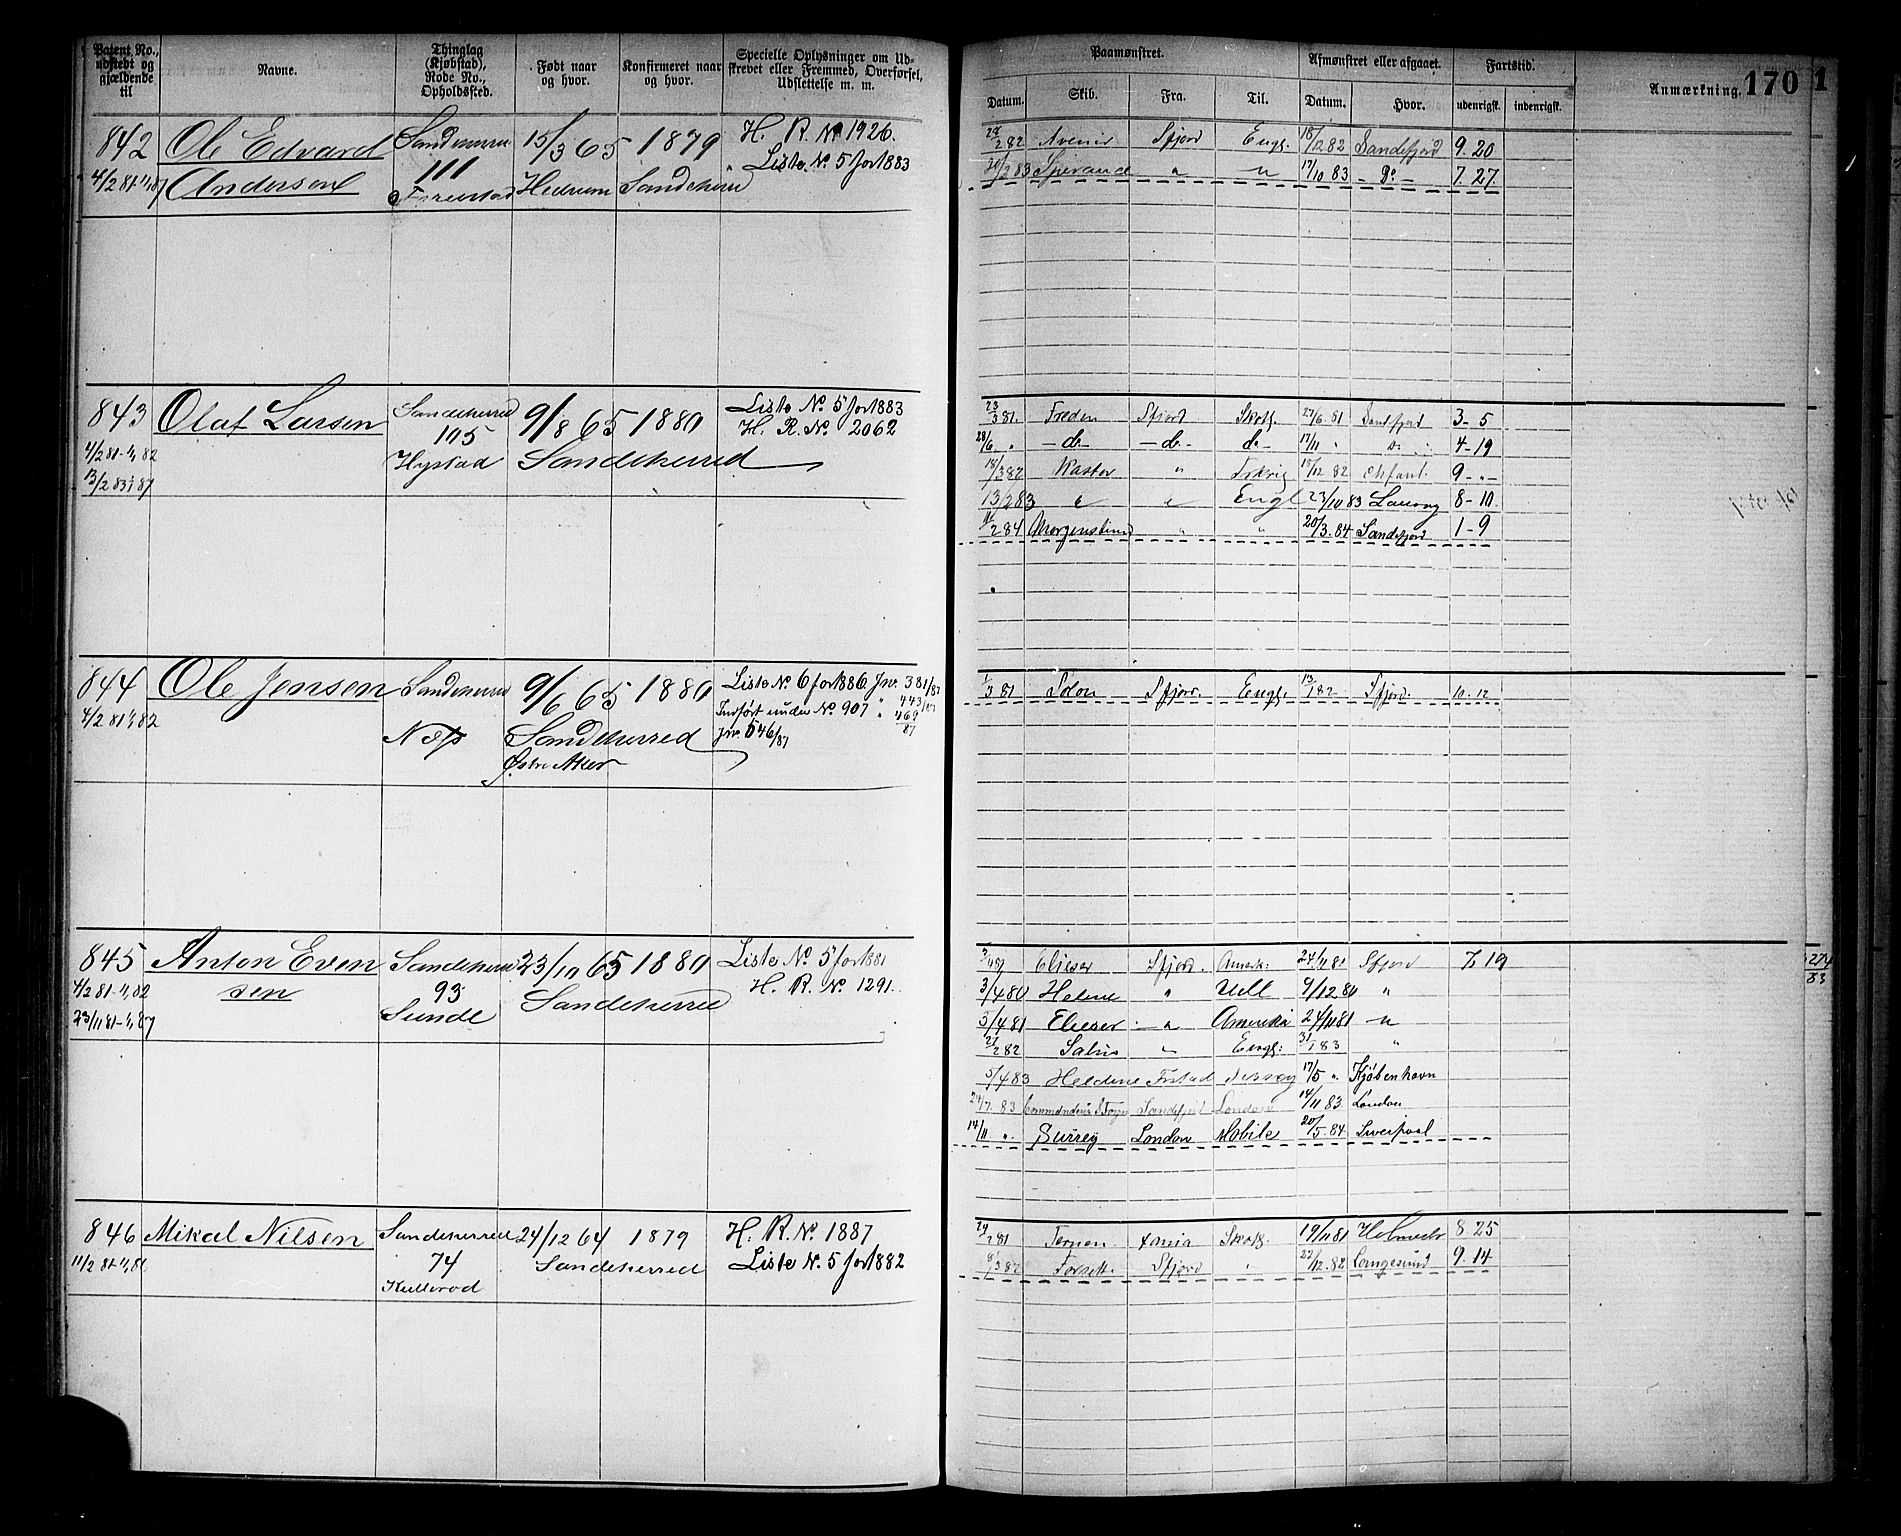 Patent No., udstedt og gjældende til
Navne.
Thinglag (Kjøbstad), Rode No., Opholdssted.
Født naar og hvor.
Konfirmeret naar og hvor.
Specielle Oplysninger om Udskrevet eller Fremmed, Overførsel, Udslettelse m. m.
Paamønstret.
Afmønstret eller afgaaet.
Fartstid.
Anmærkning.
170
1
Datum.
Skib.
Fra.
Til.
Datum.
Hvor.
udenrigsk.
indenrigsk.
842 Ole Edvard Sandeherred 15/3 65 1879 H. R. No 1926.
111 " Liste No. 5 for 1883
4/2 81-1/1 87 Andersen Hedrum Sandeherred
Avenir Sfjord Engl. 18/12 82 Sandefjord 9. 20
20/2 83 " " 17/10 83 - Do - 7. 27
843 Olaf Larsen Sandeherred 9/8 65 1880 Liste No. 5 for 1883
105 H. R. No. 2062
4/2 81-1/1 82 Hystad Sandeherred
13/2 83 1/1 87
23/3 81. Freden Sfjord Skotl. 27/6 81 Sandefjord 3-5
28/6 " - do - - do - do - 17/11 " Do 4-19
18/3 82 Kastor " 18/12 82 9-"-
13/2 83 " " Engl 23/10 83 Laurvig 8-10
11/2 84 Morgenstund " " 20/3. 84 Sandefjord 1-9
844 Ole Jensen Sandeherred 9/6 65 1880 Liste No. 6 for 1886. Jnr. 381/87
" 443/87
4/2 81 1/1 82 Næs Sandeherred Indført under No. 907 " 469/87
Jnr. 546/87
Østre Aker
1/3 81 Solon Sfjord. Engl. 13/1 82 Sfjord. 10. 12
845 Anton Evensen Sandeherred 23/10 65 1880 Liste No. 5 for 1881
4/2 81-1/1 82 93 Sandeherred H. R. No. 1291.
23/11 81-1/1 87 Sunde
Elieser Sfjord. Amerik: 24/11 81 Sfjord 7. 19
3/4 80 Helene " Hull 9/12 80 "
3/4 81 Elieser - " Amerika 24/11 81 - "
21/2 82 Salus " Engl: 31/1 83 "
5/4 83 Heldine Fstad 17/5 " Kjøbenhavn
24/7. 83 Sandefjord London 14/11 83 London
14/11 ". Surrey London Mobile 20/5. 84 Liverpool
274/83
846 Mikal Nilsen Sandeherred 24/12 64 1879 H. R. No. 1887
11/2 81-1/1 86 74 Sandeherred Liste No. 5 for 1882
Kullerød
24/2 81 Ternen Skotl. 19/11 81 Holmesbo 8 25
8/3 82 Forsett Sfjord " 22/12. 82 Langesund 9. 14